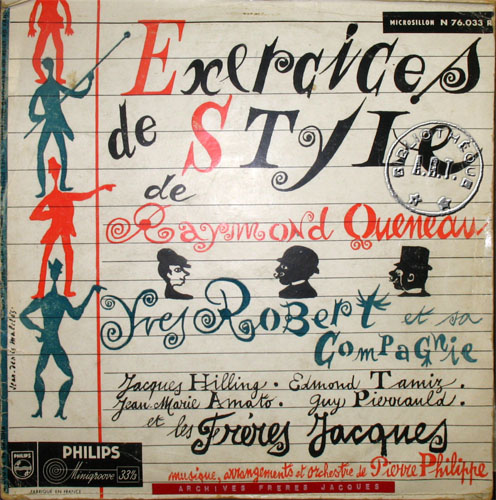 MICROSILLON N 76.033 R
Exercices
de STYLE
BIBLIOTHÈQUE
de
Raymond Queneau
Yves Robert et sa
Compagnie
Jacques Hilling. Edmond Tamiz.
Jean-Marie Amato. Guy Pierrauld.
et les Frères Jacques
Jean-Denis Malclès
PHILIPS
PHILIPS
Minigroove 33⅓
musique, arrangements et orchestre de Pierre Philippe
ARCHIVES FRERES JACQUES
FABRIQUÉ EN FRANCE